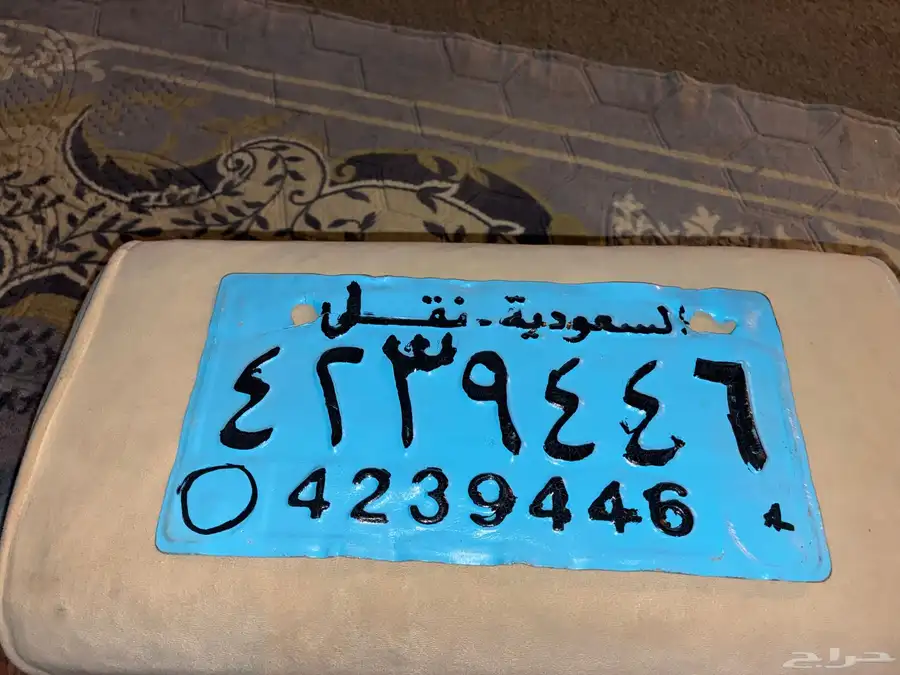 السعودية - نقل
٤٢٣٩٤٤٦
4239446
حراج